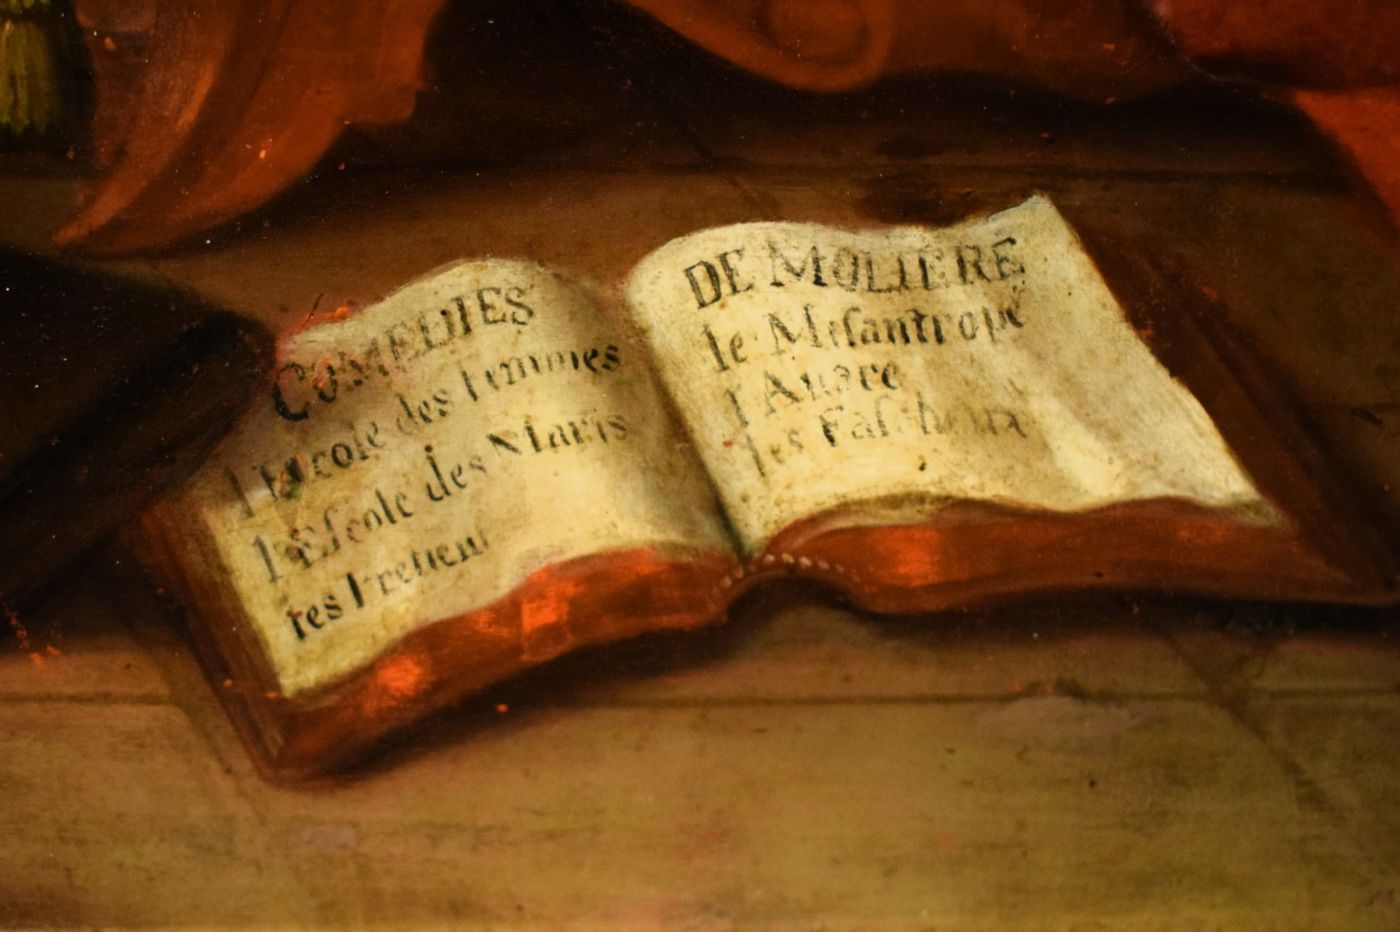 COMEDIES
l'Escole des Femmes
l'Escole des Maris
les
DE MOLIERE
le Misantrope
l'Auare
les Fascheux